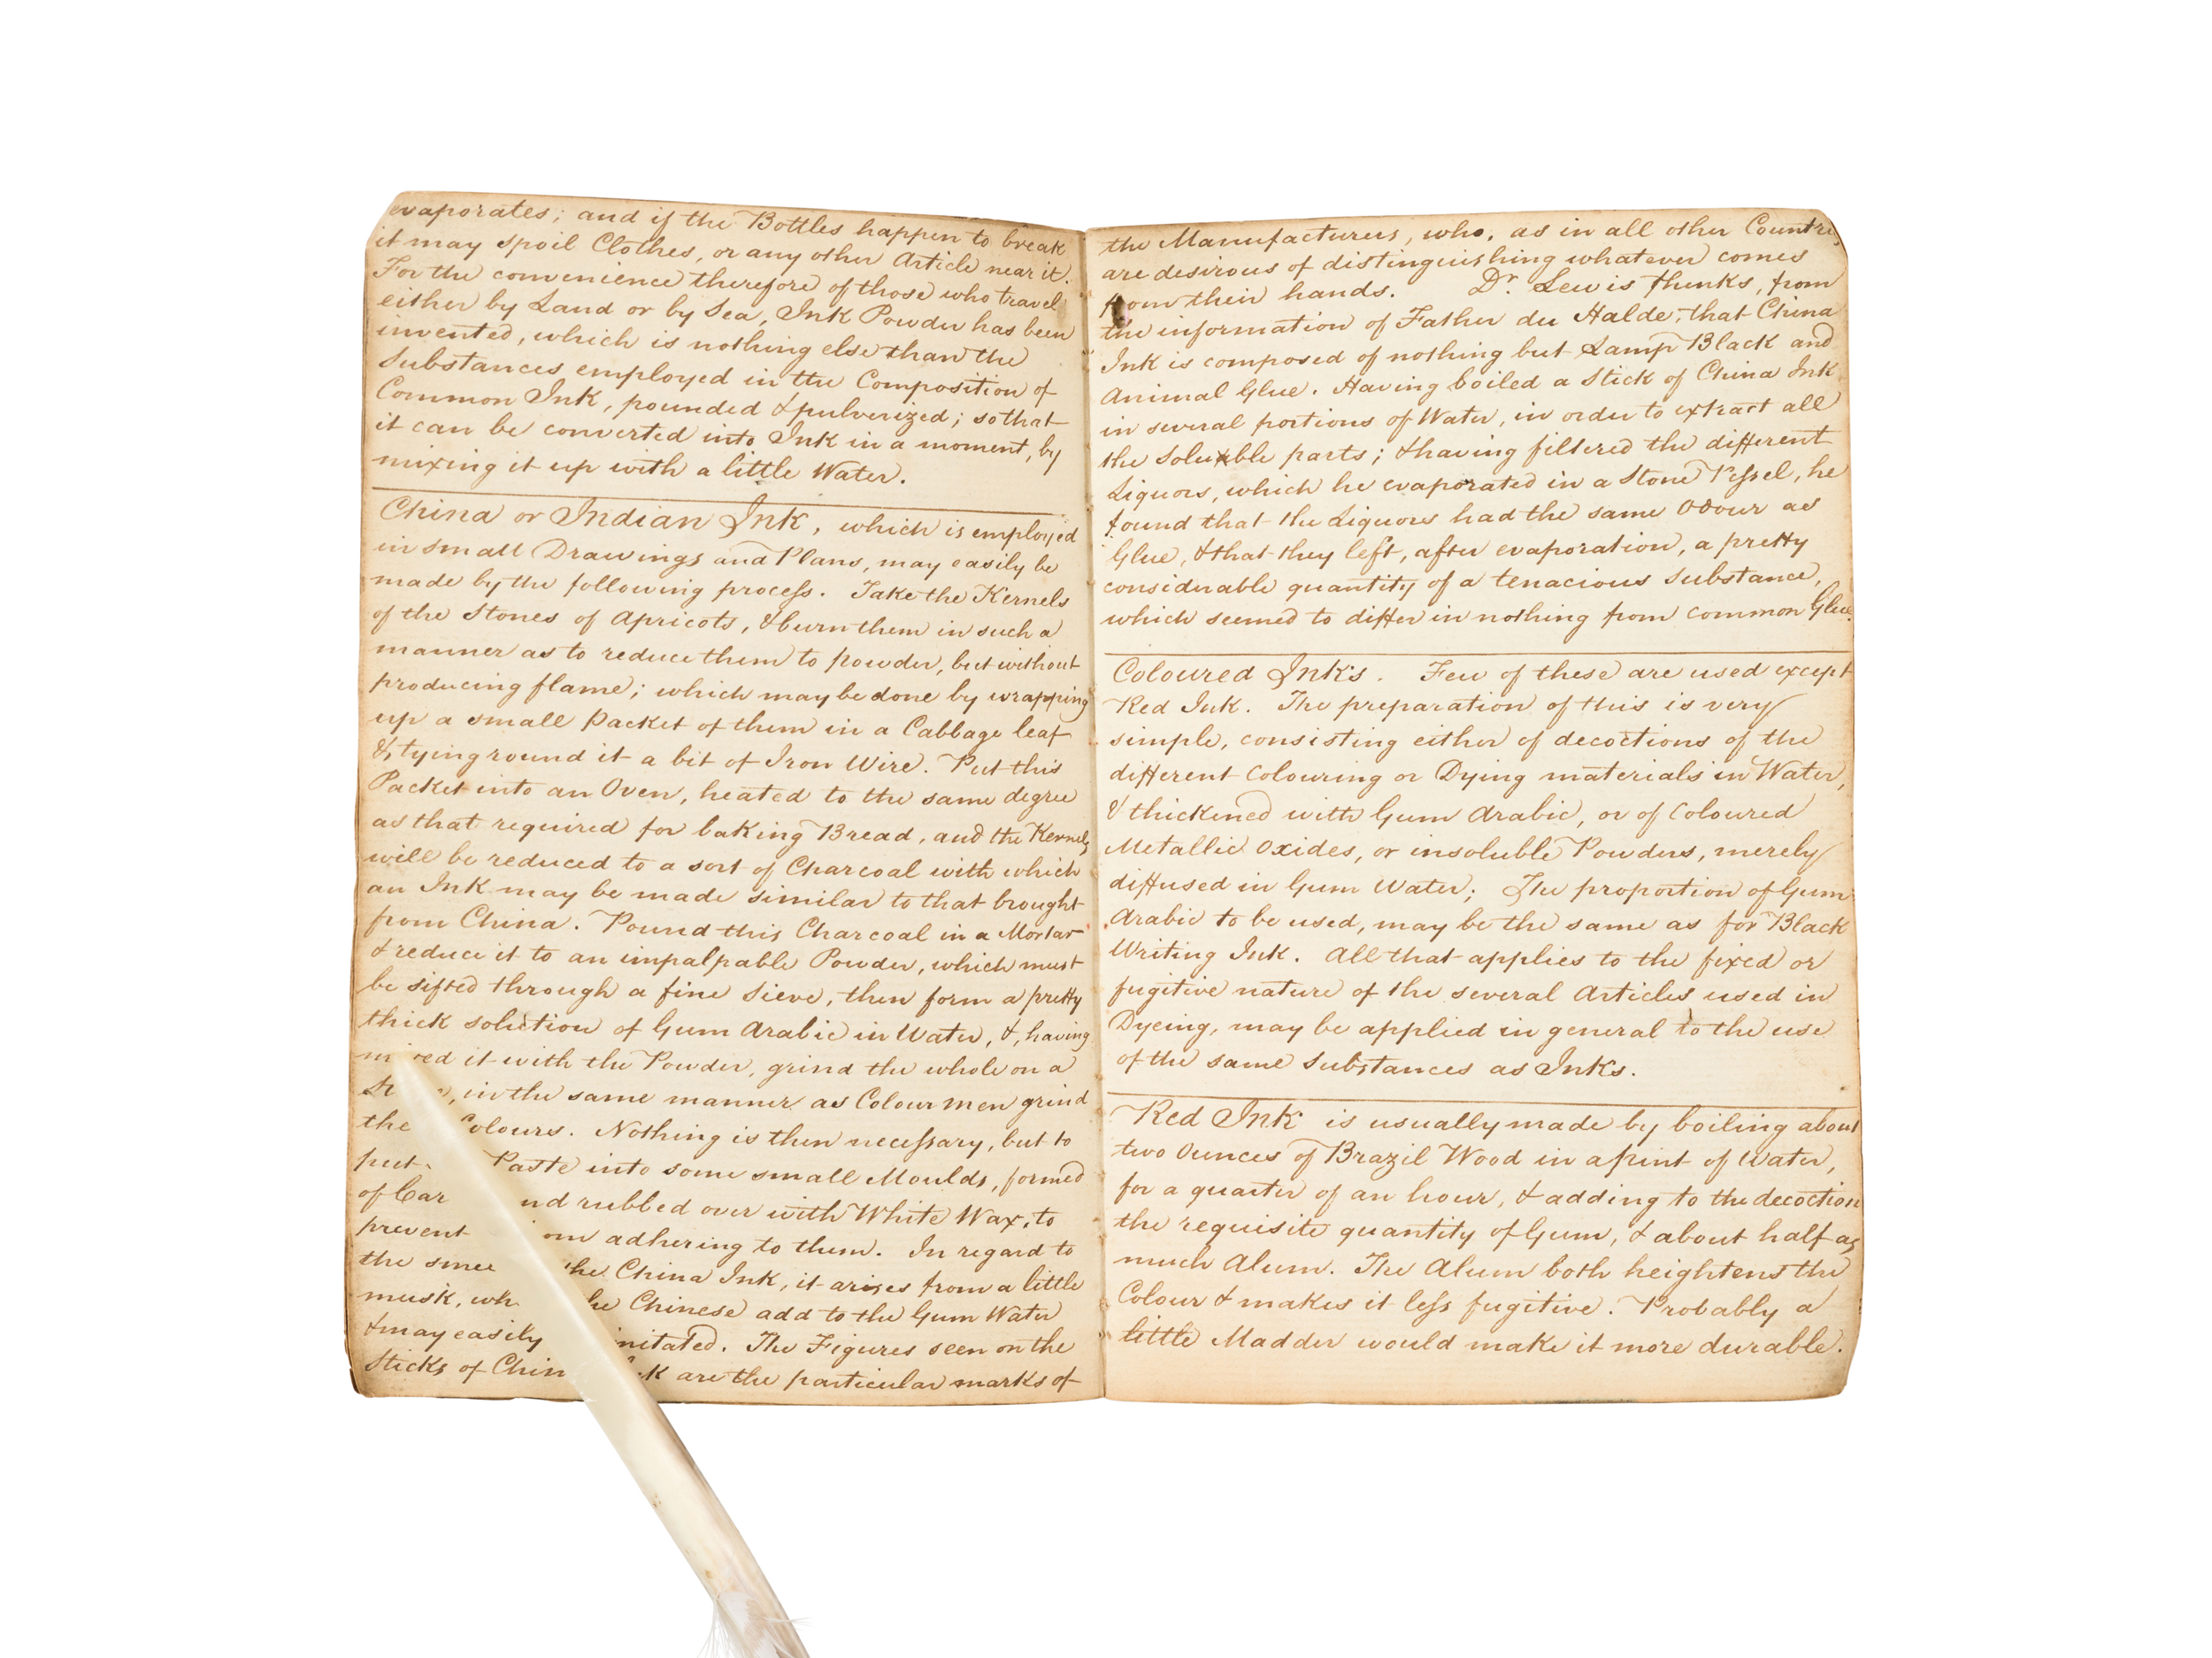 evaporates; and if the Bottles happen to break
it may spoil Clothes, or any other Article near it.
For the convenience therefore of those who travel
either by Land or by Sea, Ink Powder has been
invented, which is nothing else than the
Substances employed in the Composition of
Common Ink, pounded & pulverized; so that
it can be converted into Ink in a moment, by
mixing it up with a little Water.
China or Indian Ink, which is employed
in small Drawings and Plans, may easily be
made by the following process. Take the Kernels
of the Stones of Apricots, & burn them in such a
manner as to reduce them to powder, but without
producing flame; which may be done by wrapping
up a small Packet of them in a Cabbage leaf
&, tying round it a bit of Iron Wire. Put this
Packet into an Oven, heated to the same degree
as that required for baking Bread, and the Kernels
will be reduced to a sort of Charcoal with which
an Ink may be made similar to that brought
from China. Pound this Charcoal in a Mortar
& reduce it to an impalpable Powder, which must
be sifted through a fine Sieve, then form a pretty
thick solution of Gum Arabic in Water, &, having
it with the Powder, grind the whole on a
in the same manner as Colour men grind
Colours. Nothing is then necessary, but to
put Paste into some small Moulds, formed
of and rubbed over with White Wax, to
prevent adhering to them. In regard to
the the China Ink, it arises from a little
musk, the Chinese add to the Gum Water
& may easily imitated. The Figures seen on the
Sticks of Ink are the particular marks of
the Manufacturers, who, as in all other Countries
are desirous of distinguishing whatever comes
from their hands. Dr. Lewis thinks, from
the information of Father du Halde, that China
Ink is composed of nothing but Lamp Black and
Animal Glue. Having boiled a Stick of China Ink
in several portions of Water, in order to extract all
the Soluble parts; & having filtered the different
Liquors, which he evaporated in a Stone Vessel, he
found that the Liquors had the same Odour as
Glue, & that they left, after evaporation, a pretty
considerable quantity of a tenacious Substance,
which seemed to differ in nothing from common Glue.
Coloured Inks. Few of these are used except
Red Ink. The preparation of this is very
simple, consisting either of decoctions of the
different Colouring or Dying materials in Water,
& thickened with Gum Arabic, or of Coloured
Metallic Oxides, or insoluble Powders, merely
diffused in Gum Water; The proportion of Gum
Arabic to be used, may be the same as for Black
Writing Ink. All that applies to the fixed or
fugitive nature of the several Articles used in
Dyeing, may be applied in general to the use
of the same Substances as Inks.
Red Ink is usually made by boiling about
two Ounces of Brazil Wood in a pint of Water,
for a quarter of an hour, & adding to the decoction
the requisite quantity of Gum, & about half as
much Alum. The Alum both heightens the
Colour & makes it less fugitive. Probably a
little Madder would make it more durable.